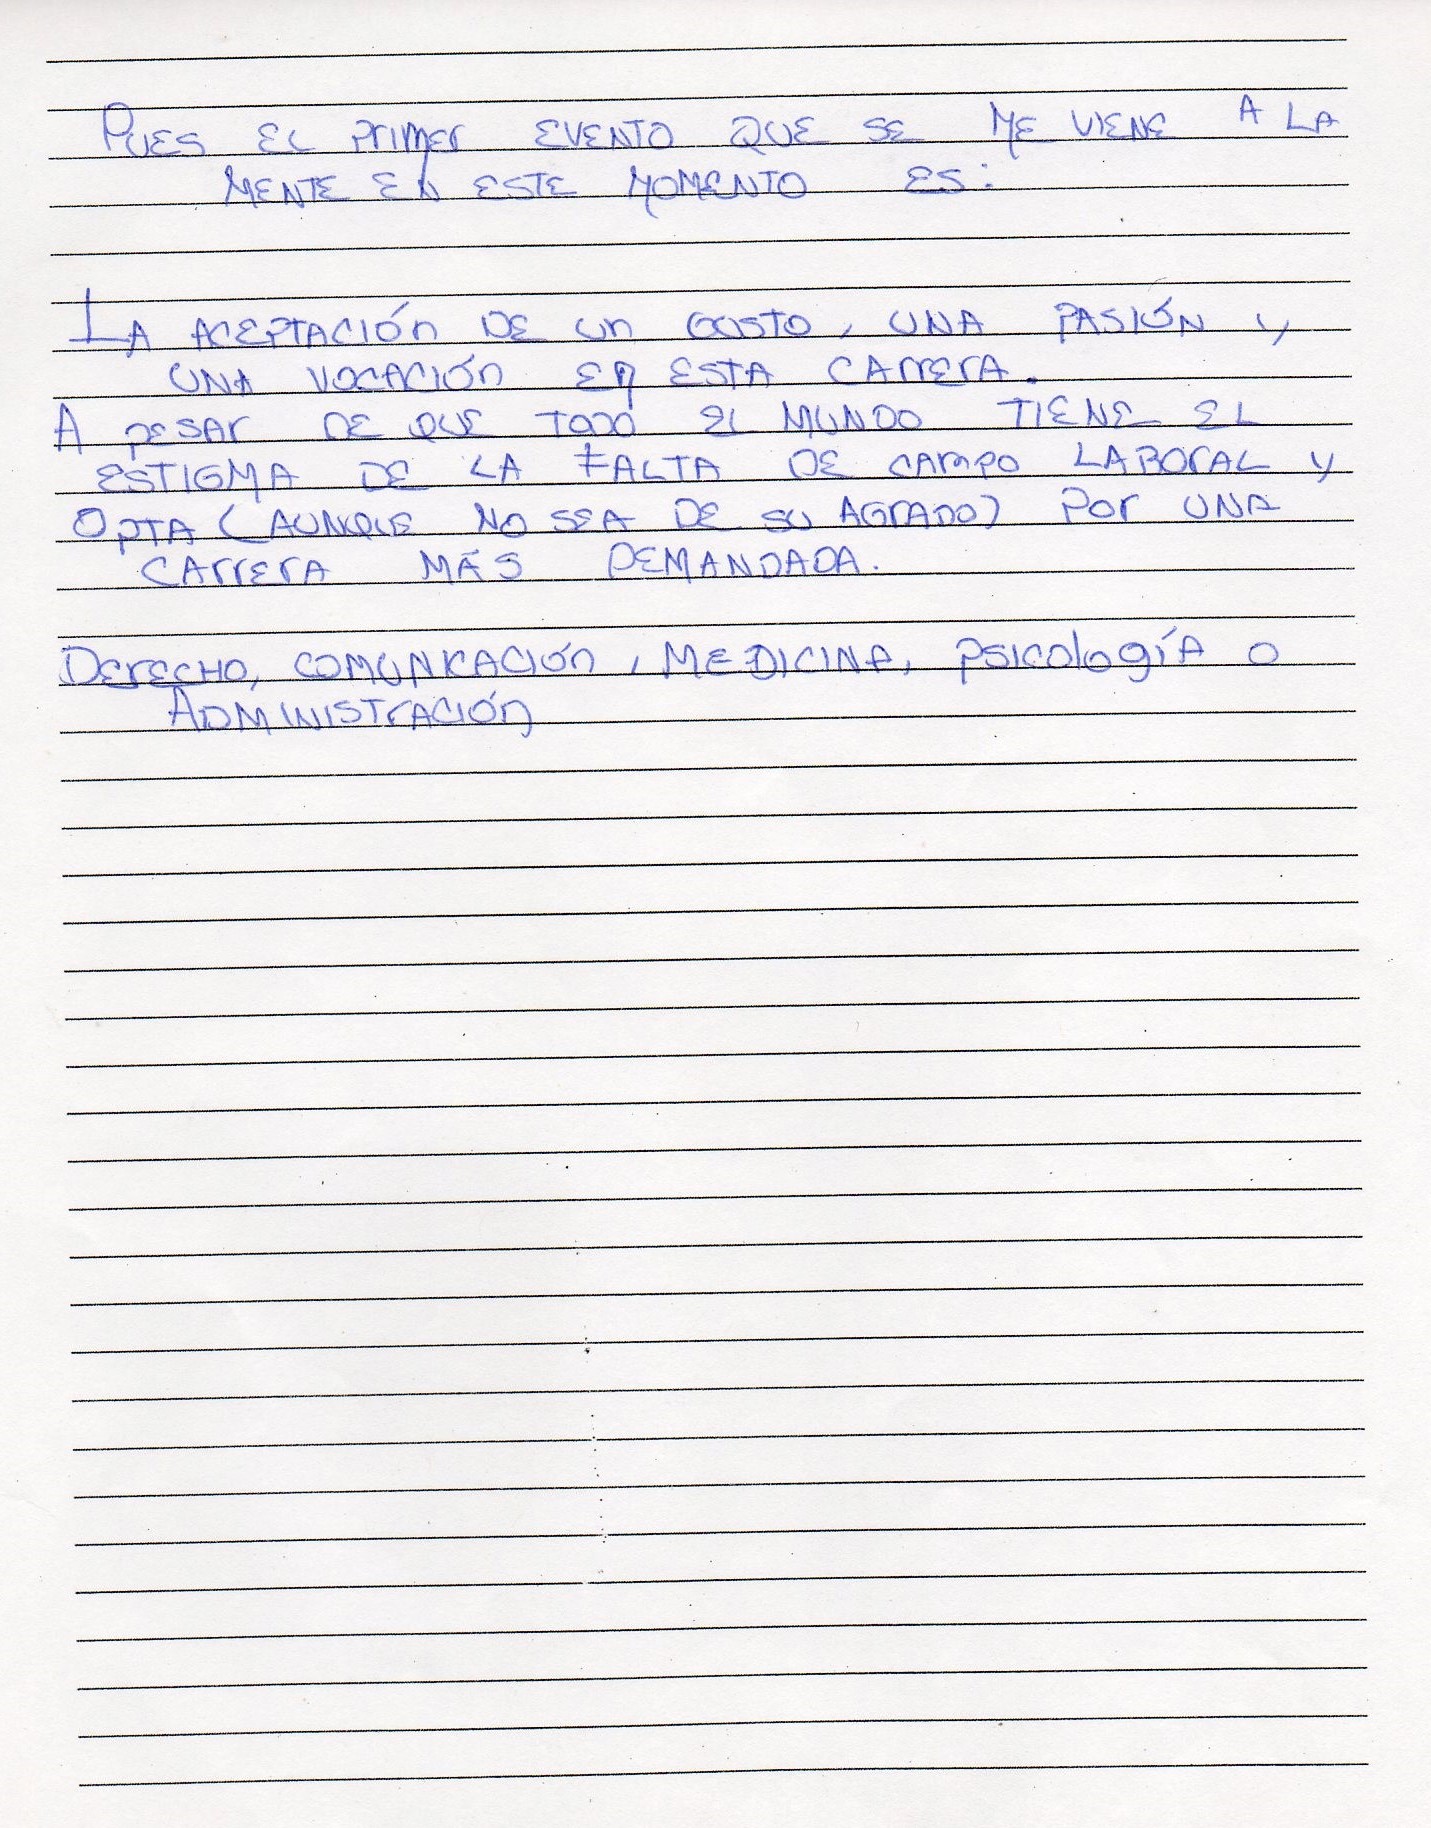 Pues el primer evento que se me viene a la
mente en este momento es:
La aceptación de un gusto, una pasión y
una vocación en esta carrera.
A pesar de que todo el mundo tiene el
estigma de la falta de campo laboral y
opta (aunque no sea de su agrado) por una
carrera más demandada.
Derecho, comunicación, medicina, psicología o
Administración